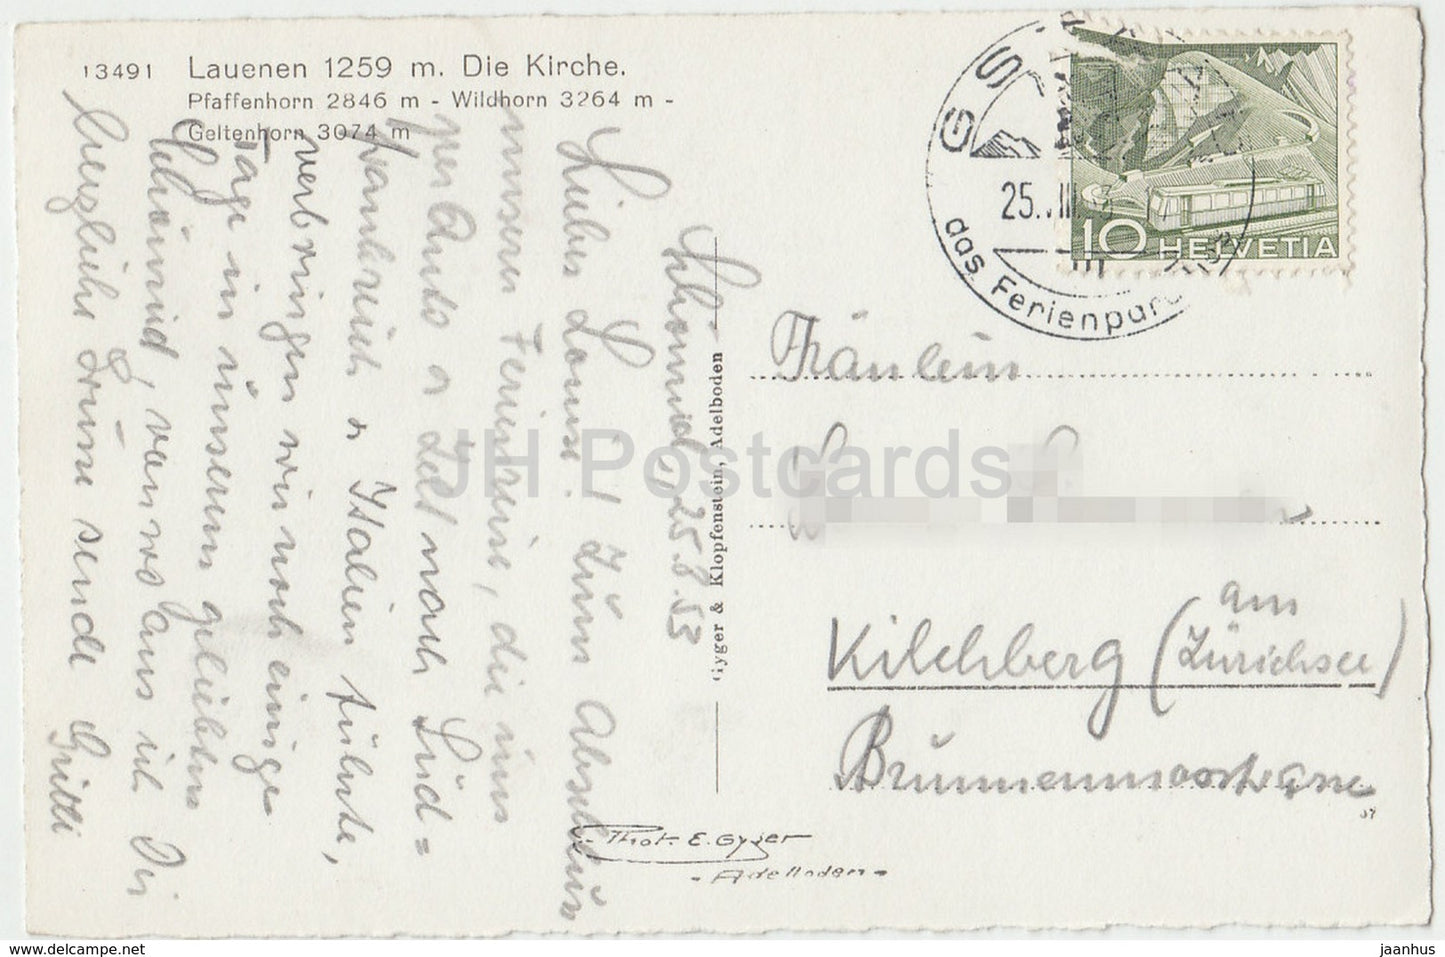 13491 Lauenen 1259 m. Die Kirche.
Pfaffenhorn 2846 m - Wildhorn 3264 m -
Geltenhorn 3074 m
25.8.53
Liebe Louise! Zum Abschluss
unserer Ferienreise, die uns
per Auto & Zelt nach Süd=
frankreich & Italien führte,
verbringen wir noch einige
Tage in unserem geliebten
von wo aus ich Dir
herzliche Grüsse sende Gritli
Gyger & Klopfenstein, Adelboden
Phot. E. Gyger
- Adelboden -
GST
25. III
das Ferienpar
10 HELVETIA
Fräulein
Kilchberg (am Zürichsee)
Brunnenmoosstrasse
JH Postcards
www.delcampe.net
jaanhus